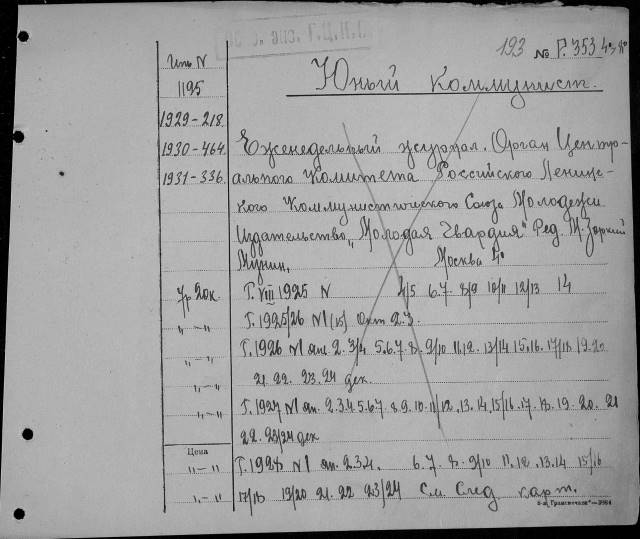 193 № Р.353 4°
Инв N
1195
Юный Коммунист.
1929-218.
1930-464.
1931-336.
Еженедельный журнал. Орган Центр-
ального Комитета Российского Ленинс-
кого Коммунистического Союза Молодежи
Издательство „Молодая Гвардия" Ред. М. Зоркий
Мунин, Москва 4°
Г. VIII 1925 N 4/5 6.7. 8/9 10/11 12/13 14
„-„ Г. 1925/26 N1(15) Окт 2.3.
„-„ Г. 1926 N1 ян. 2. 3/4 5.6.7.8. 9/10 11.12. 13/14 15.16. 17/18 19.20
„-„ 21. 22. 23. 24 дек.
„-„ Г. 1927 N1 ян. 2.3.4.5.6.7 8.9.10.11/12.13.14.15/16.17.18.19.20. 21
22. 23/24 дек
Цена
„-„ Г. 1928 N1 ян. 2.3.4. 6.7.8. 9/10 11.12.13.14 15/16
„-„ 17/18 19/20 21.22 23/24 См. след карт.